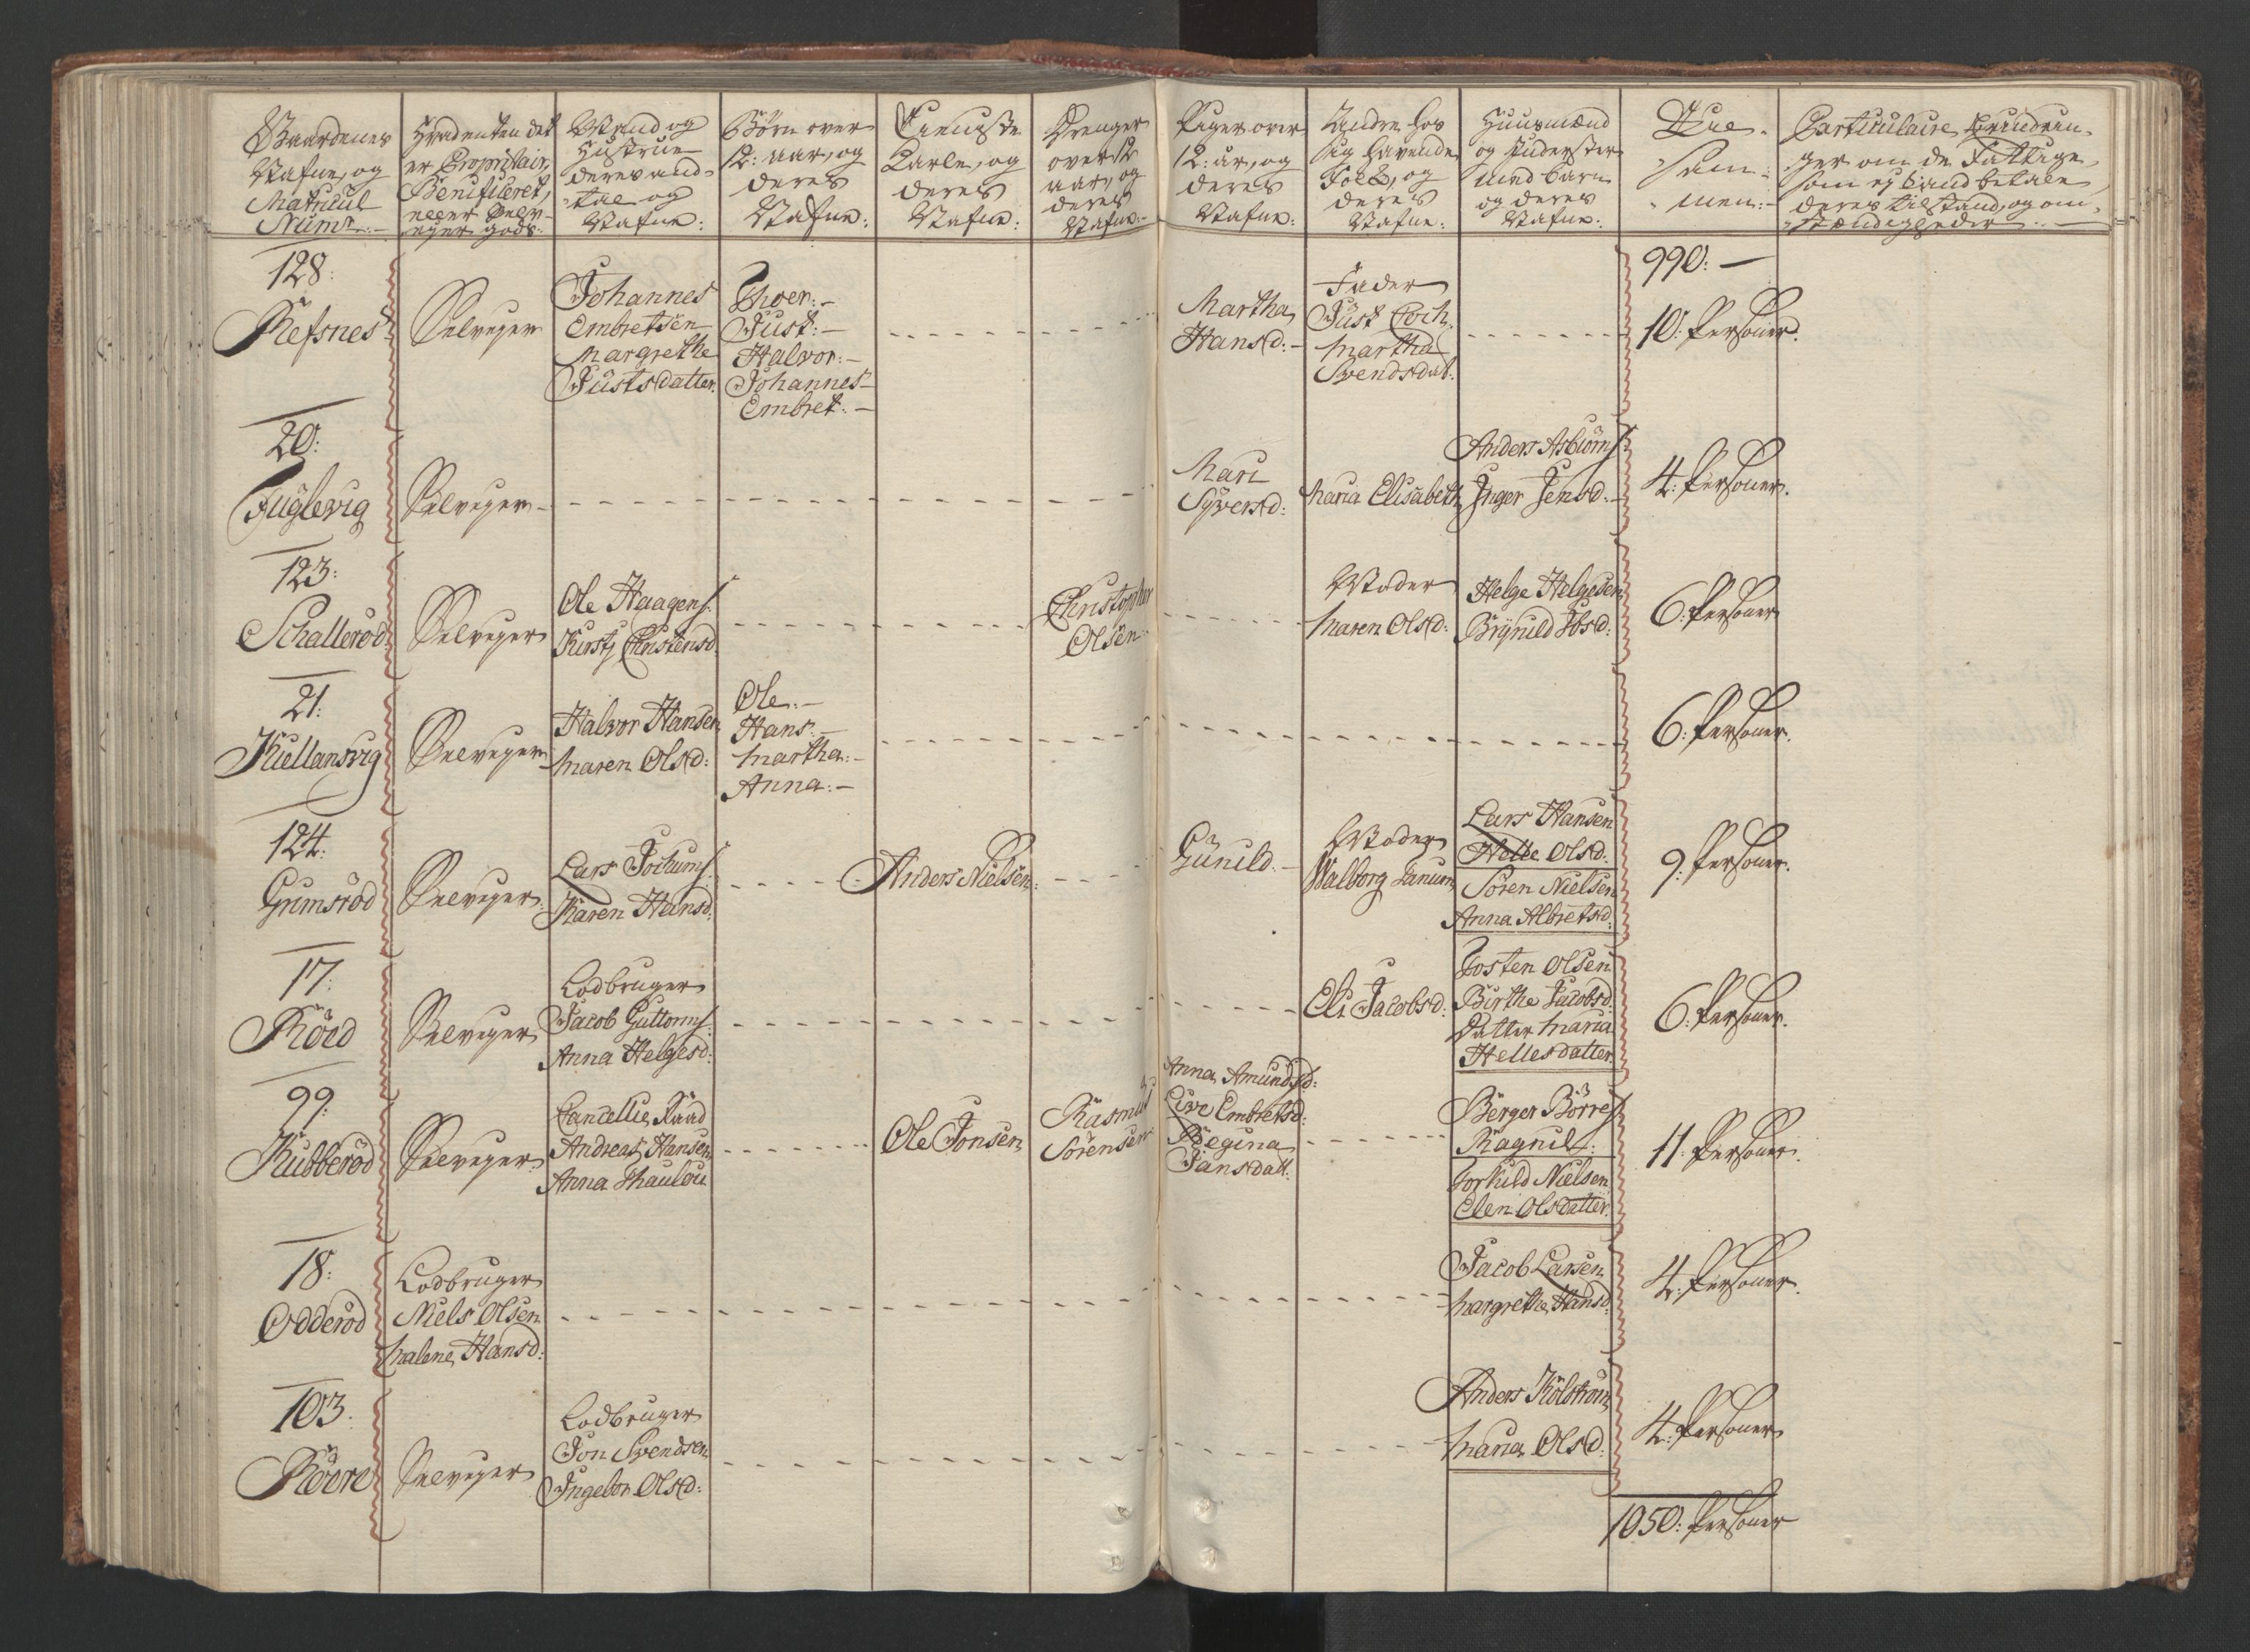 Gaardenes
Nafne, og
Matricul
Num:
Hvad enten det
er Proprietair,
Benificeret,
eller Selv-
eyer gods:
Mand og
Hustrue
deres and-
tal og
Nafne:
Børn over
12: aar, og
deres
Nafne:
Tieniste
Karle, og
deres
Nafne:
Drenger
over 12
aar, og
deres
Nafne:
Piger over
12: år, og
deres
Nafne:
Andre hos
sig havende
Folk, og
deres
Nafne:
Huusmænd
og Inderster
med barn
og deres
Nafne:
Til-
sam-
men:
Particulaire Erindrin-
ger om de Fattige,
som ej kand betale,
deres tilstand, og om-
stændigheder
990: —
128:
Refsnes
Selveyer
Johannes
Embretsen
Margrethe
Justsdatter
Thoer: —
Just: —
Halvor: —
Johannes —
Embret: —
Martha
Hansd: —
Fader
Just Coch.
Martha
Svendsdat:
10: Personer.
20:
Fuglevig
Selveyer
Mari
Syversd:
Maria Elisabeth
Anders Asbiörns:
Inger Jensd: —
4: Personer.
123:
Schalleröd
Selveyer
Ole Haagens:
Kirstj Christensd
Christopher
Olsen
Moder
Maren Olsd:
Helge Helgesen
Brynild Ibsd:
6: Personer
21:
Kiellansvig
Selveyer
Halvor Hansen
Maren Olsd:
Ole: —
Hans: —
Martha: —
Anna: —
6: Personer.
124:
Gumsröd
Selveyer
Lars Jochums:
Karen Hansd:
Anders Nielsen:
Gunild —
Moder
Walborg
Lars Hansen
Helle Olsd:
Sören Nielsen
Anna Albretsd:
9: Personer.
17:
Röed
Selveyer
Lodbruger
Jacob Guttorms:
Anna Helgesd:
Eli Jacobsd:
Josten Olsen
Birthe Jacobsd:
Datter Maria
Hellesdatter
6: Personer.
99:
Kubberöd
Selveyer
Cancellie Raad
Andreas Hansen
Anna Thaulou
Ole Jonsen
Rasmus
Sörensen
Anna Amundsd:
Live Embretsd:
Regina
Jansdatt:
Berger Börres:
Ragnil:
Torkild Nielsen
Elen Olsdatter
11: Personer.
18:
Odderöd
Lodbruger
Niels Olsen
Malene Hansd:
Jacob Larsen
Margrethe Hansd:
4: Personer.
103:
Röore
Selveyer
Lodbruger
Jon Svendsen
Ingebor Olsd:
Anders Kolstrom
Maria Olsd:
4: Personer
1050: Personer